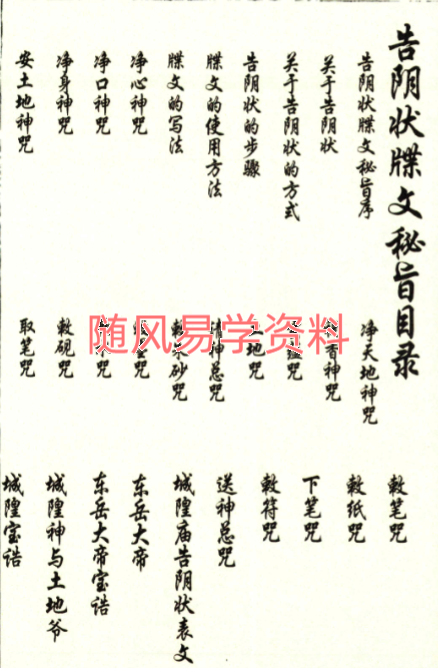 告阴状牒文秘旨目录
告阴状牒文秘旨序
关于告阴状
关于告阴状的方式
告阴状的步骤
牒文的使用方法
牒文的写法
净心神咒
净口神咒
净身神咒
安土地神咒
净天地神咒
香神咒
咒
地咒
神总咒
砂咒
咒
敕砚咒
取笔咒
敕笔咒
敕纸咒
下笔咒
敕符咒
送神总咒
城隍庙告阴状表文
东岳大帝
东岳大帝宝诰
城隍神与土地爷
城隍宝诰
随风易学资料网